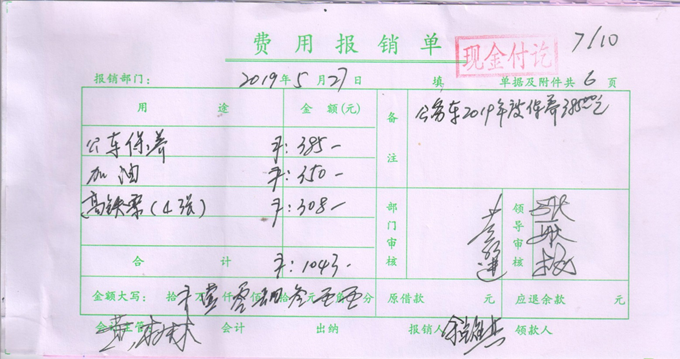 费用报销单
现金付讫
7/10
报销部门： 2019年5月27日 填 单据及附件共6页
用途 金额(元)
公车保养 ￥:385-
加油 ￥:350-
高铁票(4张) ￥:308-
合计 ￥:1043-
备注
公务车2019年度保养385.00元
部门审核
领导审核
金额大写： 拾 万 壹仟零佰肆拾叁元 角 分 原借款 元 应退余款 元
会计主管 会计 出纳 报销人 领款人